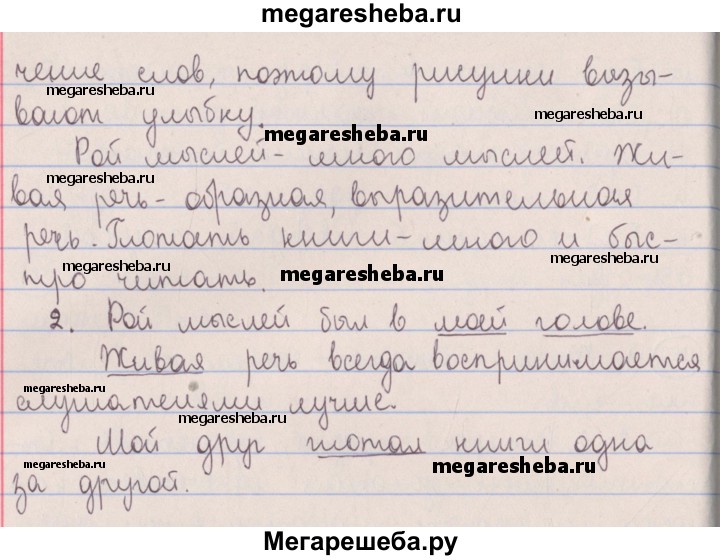 megaresheba.ru
чение слов, поэтому рисунки вызы-
megaresheba.ru
вают улыбку.
megaresheba.ru
megaresheba.ru
Рой мыслей - много мыслей. Жи-
megaresheba.ru
вая речь - образная, выразительная
речь. Глотать книги - много и быс-
megaresheba.ru
megaresheba.ru
megaresheba.ru
тро читать.
2. Рой мыслей был в моей голове.
Живая речь всегда воспринимается
megaresheba.ru
слушателями лучше.
megaresheba.ru
Мой друг глотал книги одна
megaresheba.ru
megaresheba.ru
за другой.
Мегарешеба.ру